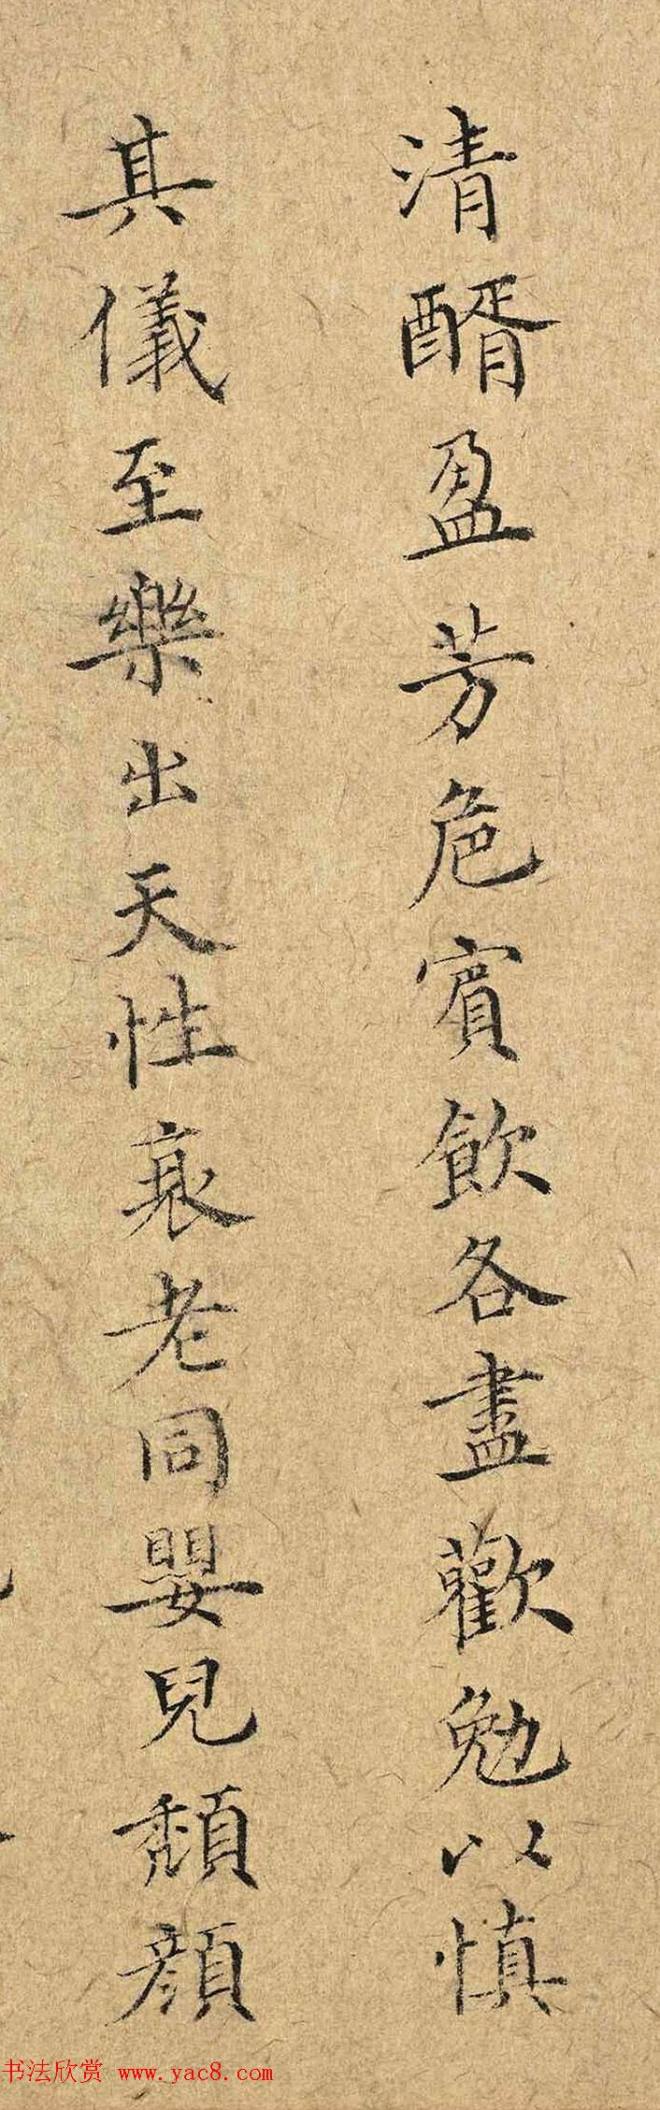 清醑盈芳卮賓飲各盡歡勉以慎
其儀至樂出天性衰老同嬰兒頹顏
书法欣赏 www.yac8.com